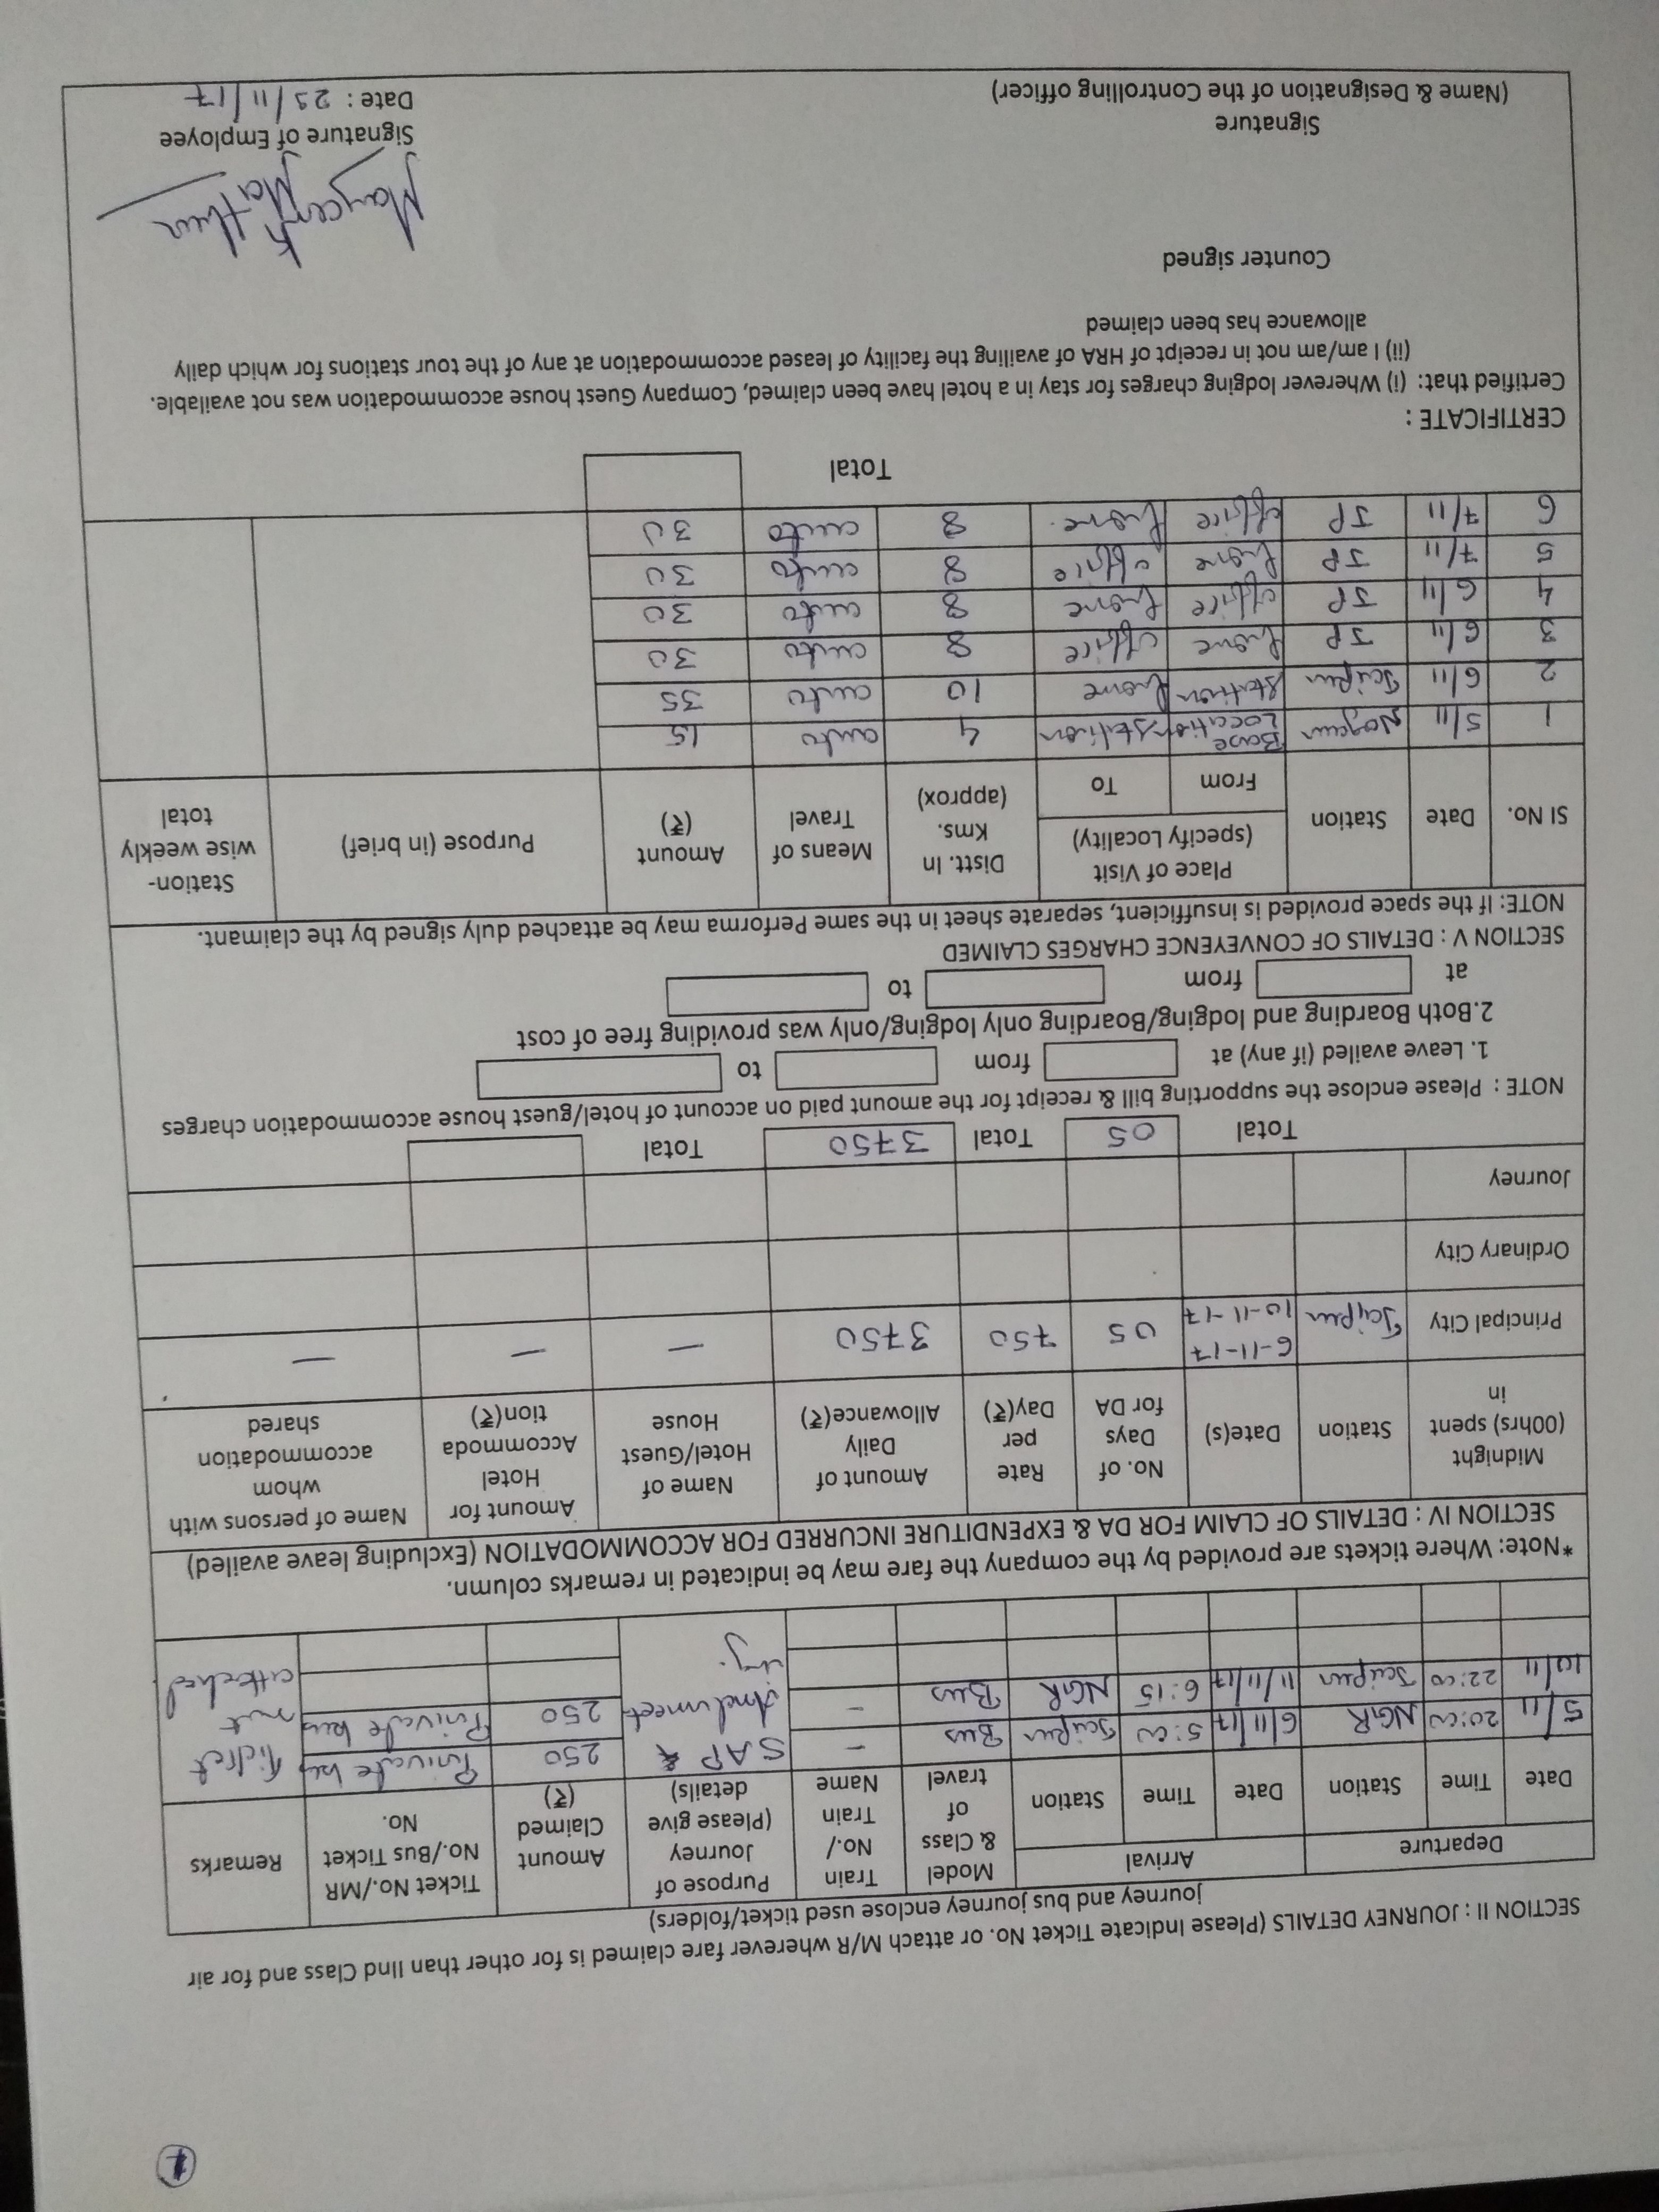 1
SECTION II : JOURNEY DETAILS (Please Indicate Ticket No. or attach M/R wherever fare claimed is for other than IInd Class and for air
journey and bus journey enclose used ticket/folders)
Departure Arrival Model & Class of travel Train No./ Train Name Purpose of Journey (Please give details) Amount Claimed (₹) Ticket No./MR No./Bus Ticket No. Remarks
Date Time Station Date Time Station
5/11 20:00 NGR 6/11/17 5:00 Jaipur Bus – SAP & 250 Private bus Ticket
10/11 22:00 Jaipur 11/11/17 6:15 NGR Bus – 250 Private bus not
attached
*Note: Where tickets are provided by the company the fare may be indicated in remarks column.
SECTION IV : DETAILS OF CLAIM FOR DA & EXPENDITURE INCURRED FOR ACCOMMODATION (Excluding leave availed)
Midnight (00hrs) spent in Station Date(s) No. of Days for DA Rate per Day(₹) Amount of Daily Allowance(₹) Name of Hotel/Guest House Amount for Hotel Accommoda tion(₹) Name of persons with whom accommodation shared
Principal City Jaipur 6-11-17 10-11-17 05 750 3750 — — —
Ordinary City
Journey
Total 05 Total 3750 Total
NOTE : Please enclose the supporting bill & receipt for the amount paid on account of hotel/guest house accommodation charges
1. Leave availed (if any) at from to
2.Both Boarding and lodging/Boarding only lodging/only was providing free of cost
at from to
SECTION V : DETAILS OF CONVEYENCE CHARGES CLAIMED
NOTE: If the space provided is insufficient, separate sheet in the same Performa may be attached duly signed by the claimant.
Sl No. Date Station Place of Visit (specify Locality) Distt. In Kms. (approx) Means of Travel Amount (₹) Purpose (in brief) Station-wise weekly total
From To
1 5/11 Nagaur Base Location station 4 auto 15
2 6/11 Jaipur station home 10 auto 35
3 6/11 JP home office 8 auto 30
4 6/11 JP office home 8 auto 30
5 7/11 JP home office 8 auto 30
6 7/11 JP office home. 8 auto 30
Total
CERTIFICATE :
Certified that: (i) Wherever lodging charges for stay in a hotel have been claimed, Company Guest house accommodation was not available.
(ii) I am/am not in receipt of HRA of availing the facility of leased accommodation at any of the tour stations for which daily
allowance has been claimed
Counter signed
Signature
(Name & Designation of the Controlling officer)
Signature of Employee
Date : 23/11/17